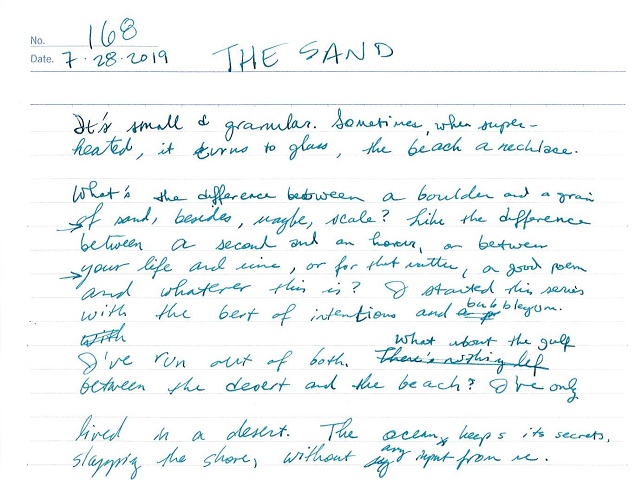 No. 168
Date. 7·28·2019 THE SAND
It's small & granular. Sometimes, when super-
heated, it turns to glass, the beach a necklace.
What's the difference between a boulder and a grain
of sand, besides, maybe, scale? Like the difference
between a second and an hour, or between
your life and mine, or for that matter, a good poem
and whatever this is? I started this series
with the best of intentions and bubblegum.
with What about the gulf
I've run out of both. There's nothing lef
between the desert and the beach? I've only
lived in a desert. The ocean keeps its secrets,
slapping the shore, without any input from me.